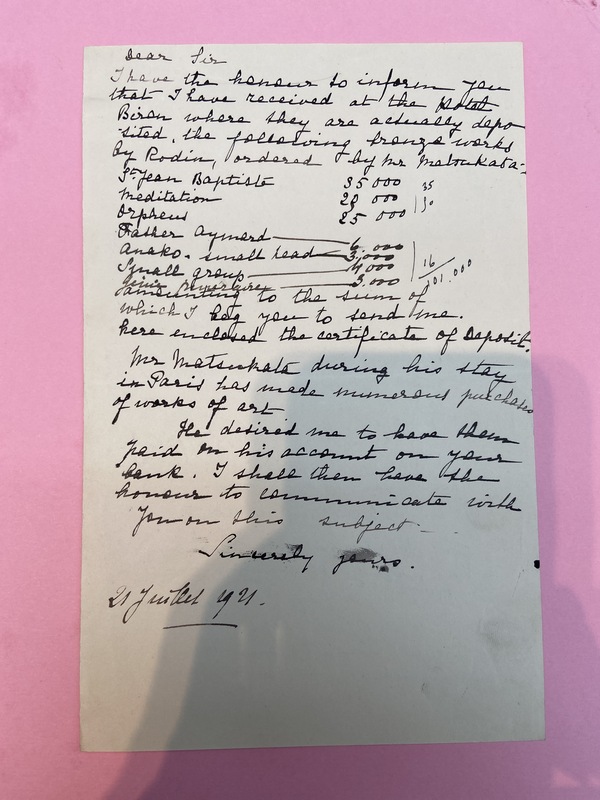 Dear Sir
I have the honour to inform you
that I have received at the Hotel
Biron where they are actually depo
sited, the following bronze works
by Rodin, ordered by Mr Matsukata:
St Jean Baptiste 35 000 35
Meditation 20 000 50
Orpheus 25 000
Father Aymard 6.000
Anako. small head 3,000
Small group 4,000 16
3.000 101.000
amounting to the sum of
which I beg you to send me.
here enclosed the certificate of Deposit.
Mr Matsukata during his stay
in Paris has made numerous purchases
of works of art
He desired me to have them
paid on his account on your
bank. I shall then have the
honour to communicate with
you on this subject.
Sincerely yours.
21 Juillet 1921.